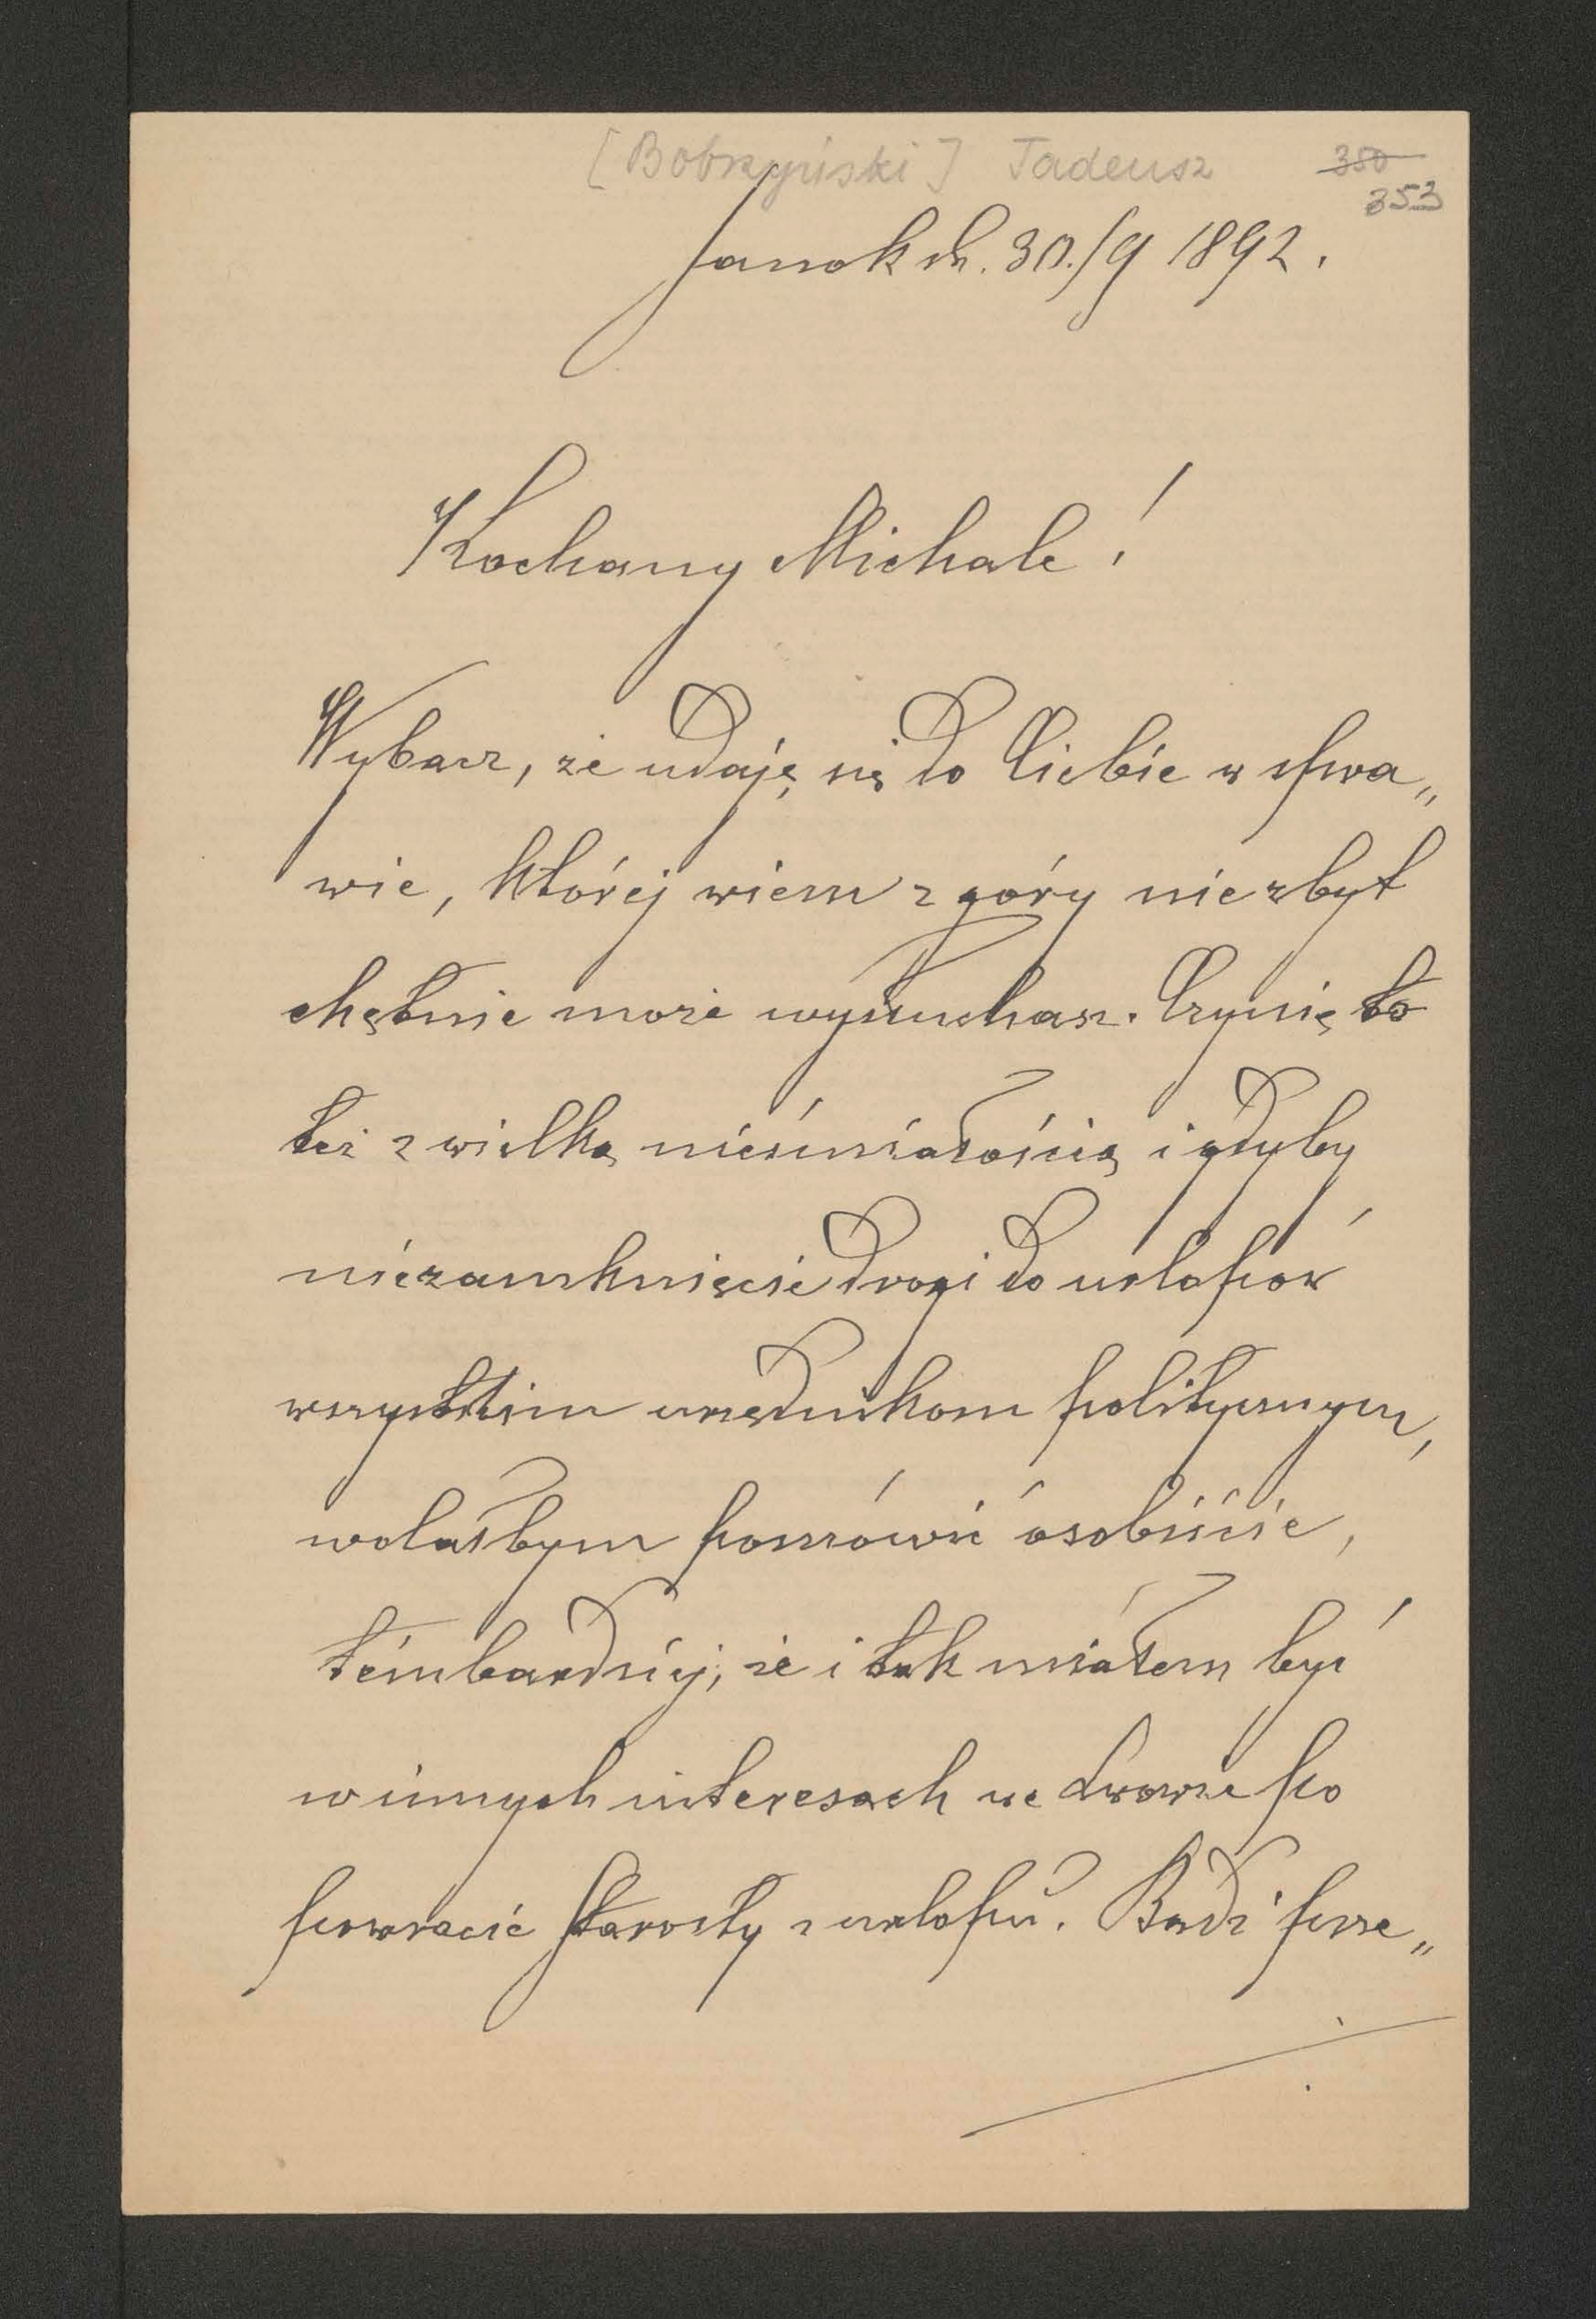 [Bobrzyński] Tadeusz 350
353
Sanok d. 30./9 1892.
Kochany Michale!
Wybacz, że udaję się do Ciebie w spra„
wie, której wiem z góry niezbyt
chętnie może wysłuchasz. Czynię to
też z wielką nieśmiałością i gdyby
niezamknięcie drogi do urlopów
wszystkim urzędnikom politycznym,
wolałbym pomówić osobiście,
tembardziej, że i tak miałem być
w innych interesach we Lwowie po
powrocie Starosty z urlopu. Bądź prze„